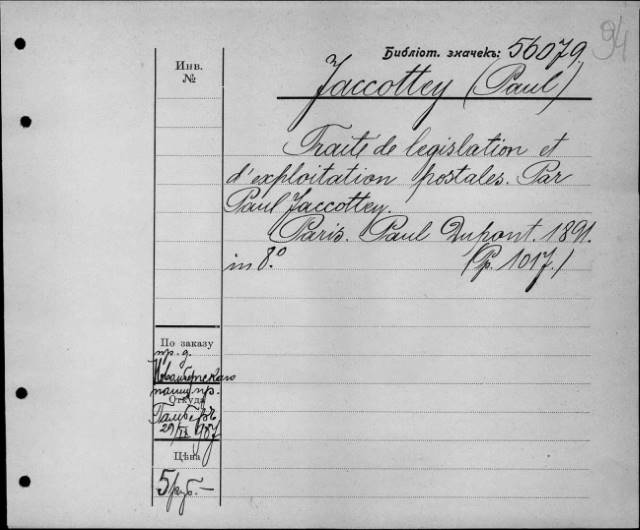 94
Библіот. значекъ: 56079.
Инв.
№
Jaccottey (Paul)
Traité de legislation et
d'exploitation postales. Par
Paul Jaccottey.
Paris. Paul Dupont. 1891.
in 8.º (P. 1017.)
По заказу
пр. д.
пр.
Откуда
29/IX 907
Цѣна
5 руб. —